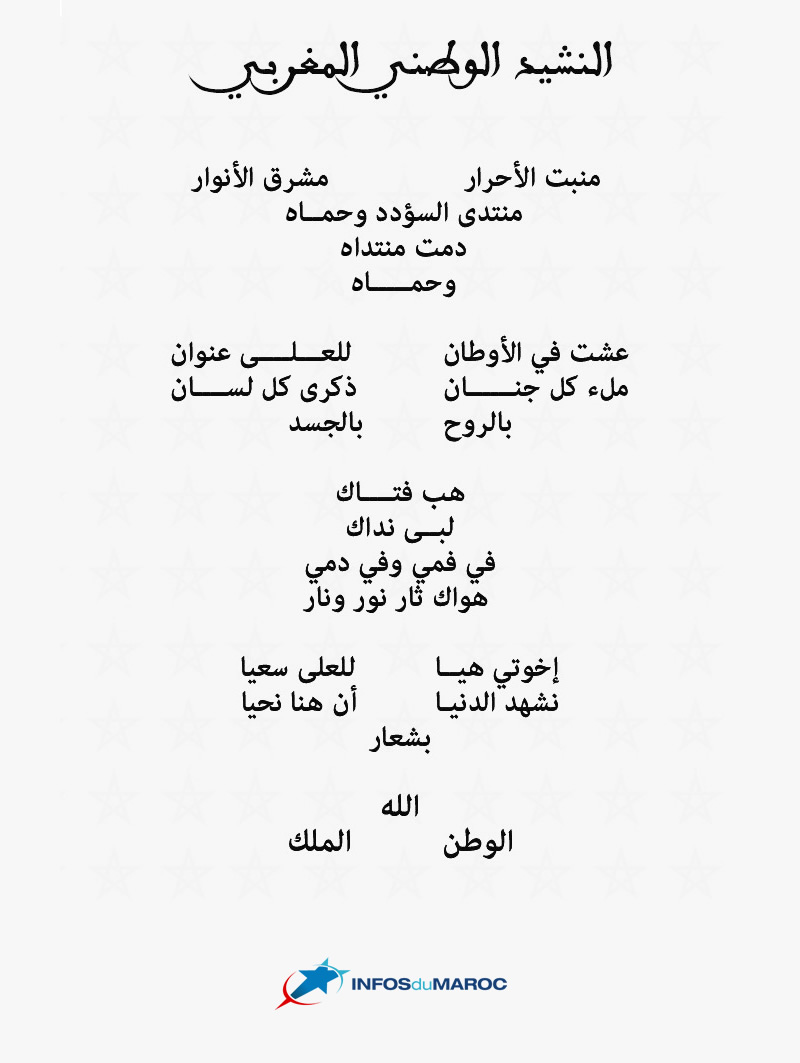 النشيد الوطني المغربي
منبت الأحرار مشرق الأنوار
منتدى السؤدد وحمـــاه
دمت منتداه
وحمــــــاه
عشت في الأوطان للعــــلـــــى عنوان
ملء كل جنـــــــان ذكرى كل لســـــان
بالروح بالجسد
هب فتـــــاك
لبـــى نداك
في فمي وفي دمي
هواك ثار نور ونار
إخوتي هيـــا للعلى سعيا
نشهد الدنيـا أن هنا نحيا
بشعار
الله
الوطن الملك
INFOSduMAROC